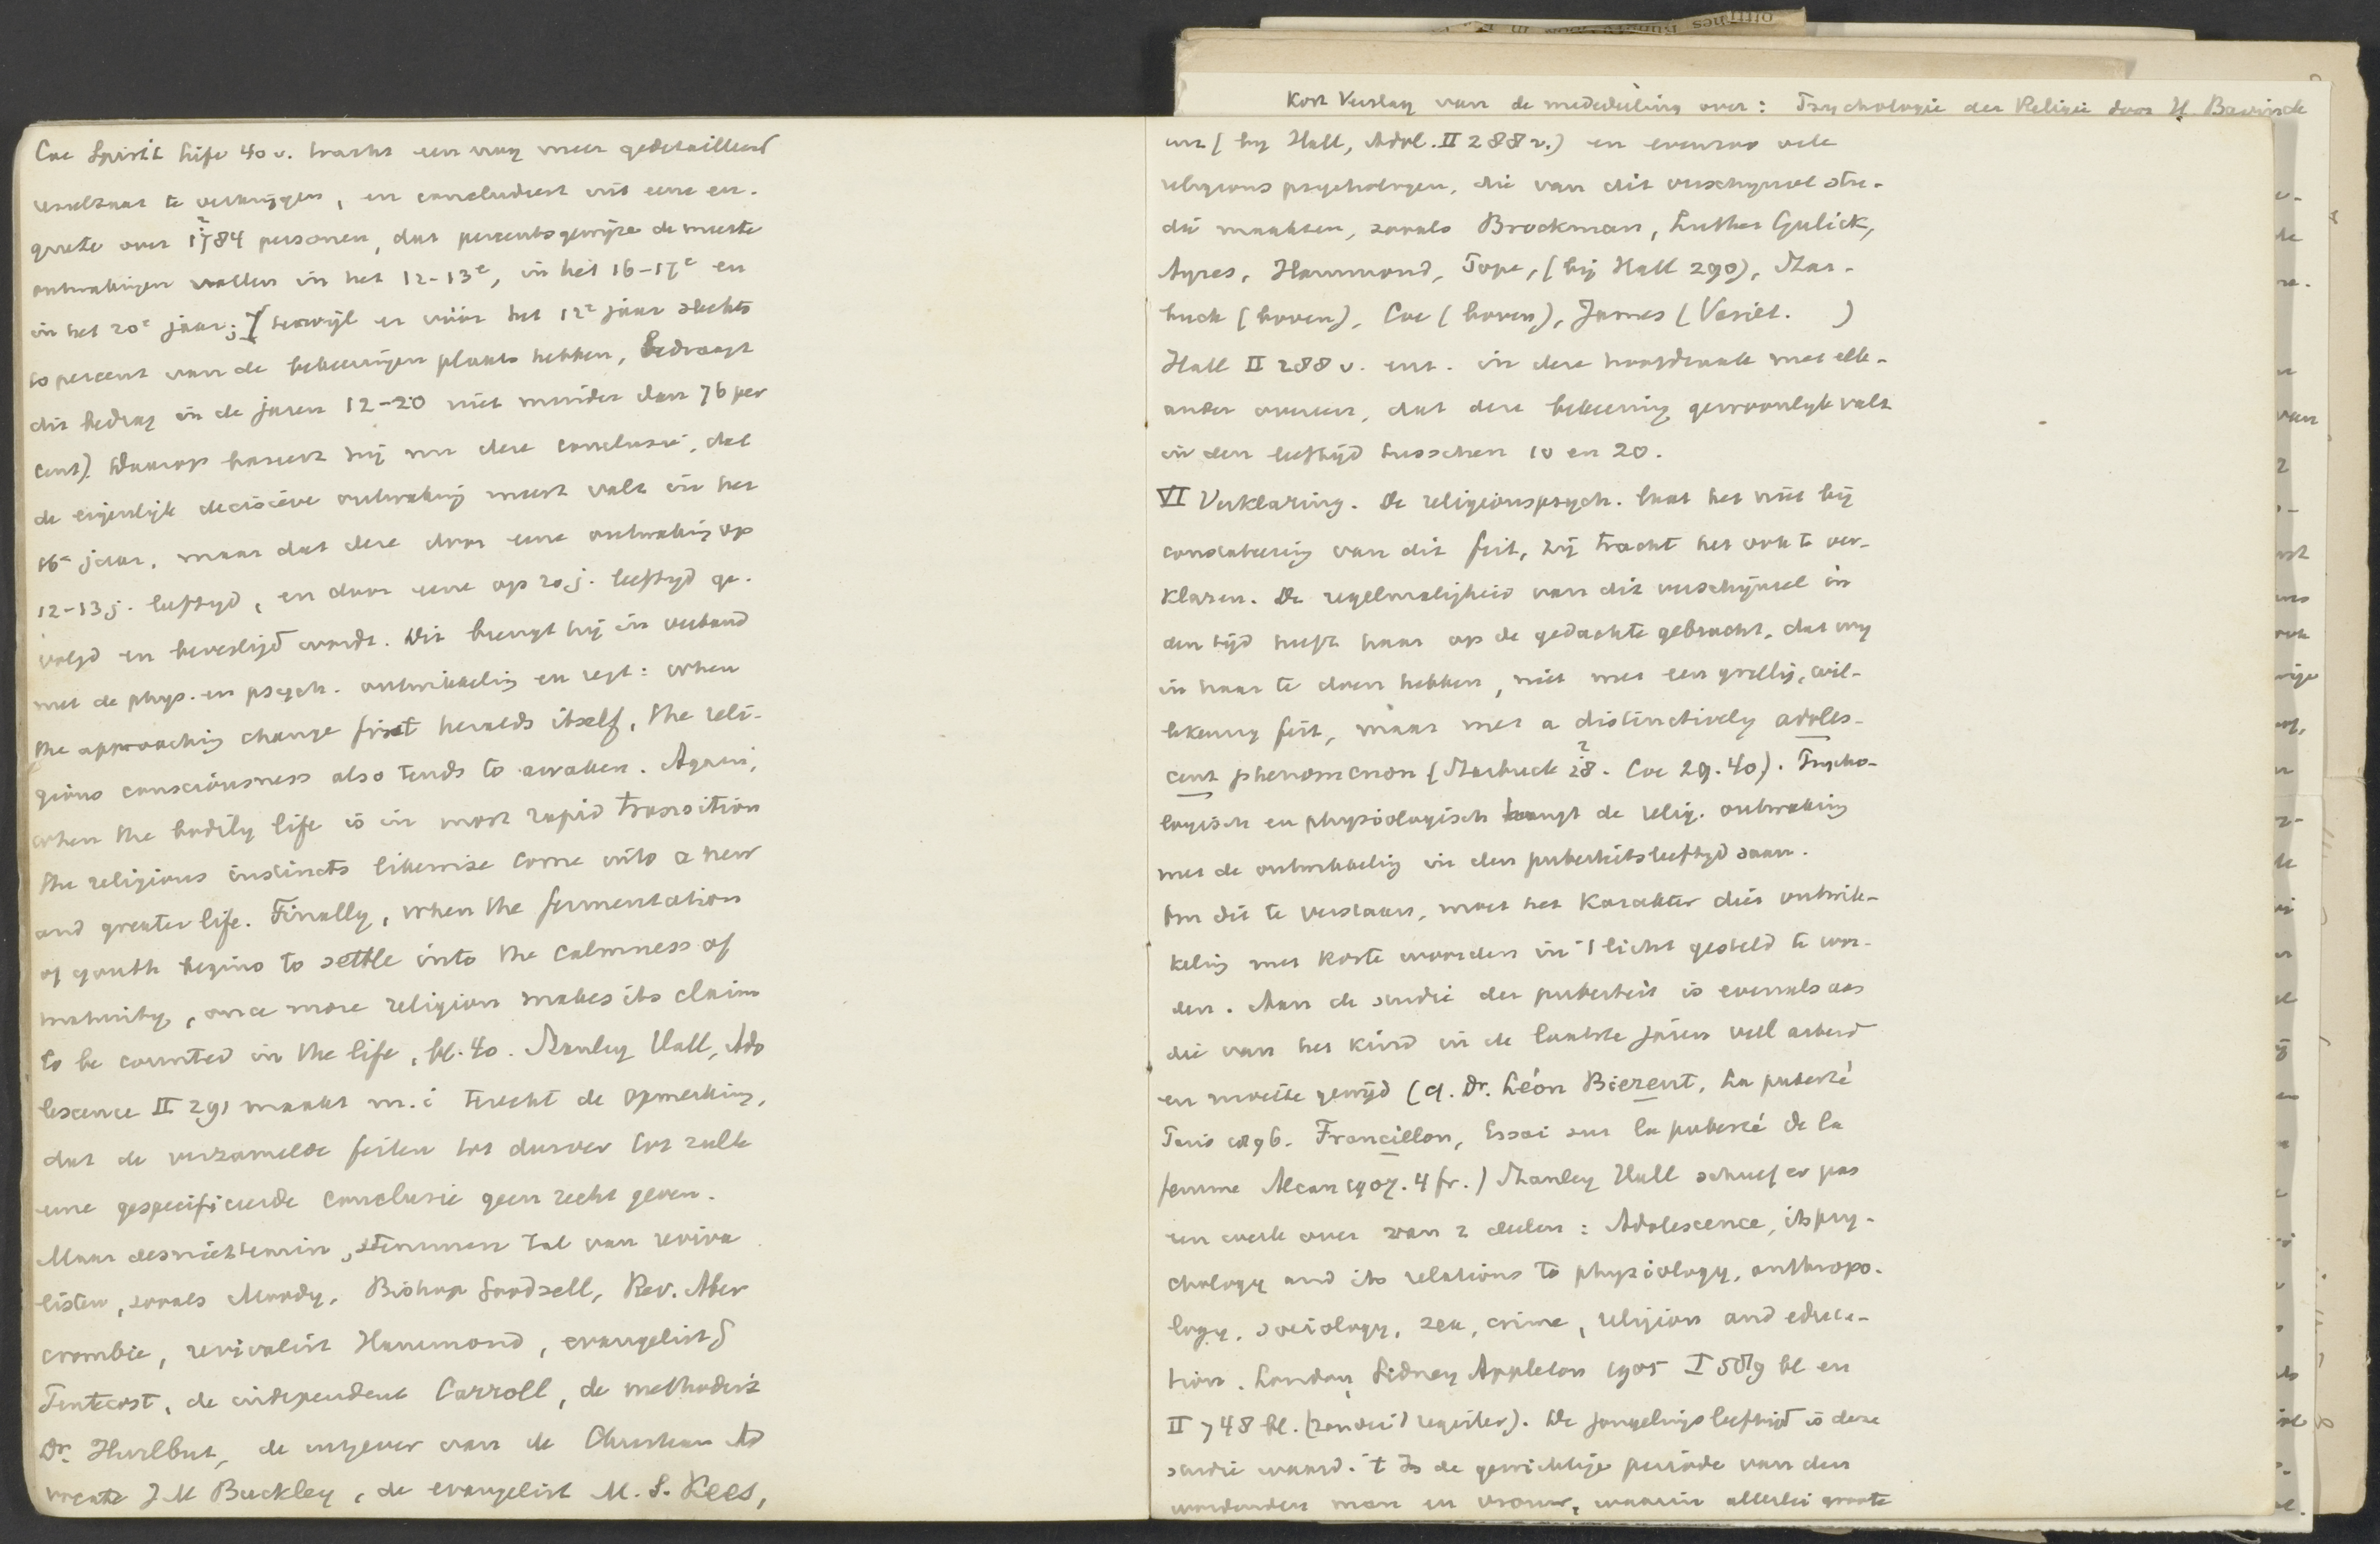 Kort Verslag van de mededeeling over: Psychologie der Religie door H. Bavinck
Coe Spirit. Life 40 v. tracht een nog meer gedetailleerd
resultaat te verkrijgen, en concludeert uit eene en-
quete over 1784 personen, dat percentsgewijze de meeste
ontwakingen vallen in het 12-13e, in het 16-17e en
in het 20e jaar; (terwijl er vóór het 12e jaar slechts
10 percent van de bekeeringen plaats hebben, bedraagt
dit bedrag in de jaren 12-20 niet minder dan 76 per
cent). Daarop baseert hij nu deze conclusie, dat
de eigenlijke decisieve ontwaking meest valt in het
16e jaar, maar dat deze door eene ontwaking op
12-13 j. leeftijd, en door eene op 20 j. leeftyd ge-
volgd en bevestigd wordt. Dit brengt hij in verband
met de phys. en psych. ontwikkeling en zegt: when
the approaching change first heralds itself, the reli-
gious consciousness also tends to awaken. Again,
when the bodily life is in most rapid transition
the religious instincts likewise come into a new
and greater life. Finally, when the fermentation
of youth begins to settle into the calmness of
maturity, once more religion makes its claim
to be counted in the life, bl. 40. Stanley Hall, Ado
lescence II 291 maakt m.i. terecht de opmerking,
dat de verzamelde feiten tot dusver tot zulk
eene gespecificeerde conclusie geen recht geven.
Maar desniettemin, stemmen tal van reviva
listen, zooals Moody, Bishop Goodsell, Rev. Aber
crombie, revivalist Hammond, evangelist
Pentecost, de independent Carroll, de methodist
Dr. Hurlbut, de uitgever van de Christian Ad
vocate J M Buckley, de evangelist M. S. Rees,
enz (by Hall, Adol. II 288 v.) en evenzoo vele
religionspsychologen, die van dit verschijnsel stu-
die maakten, zooals Brockman, Luther Gulick,
Ayres, Hammond, Pope, (bij Hall 290), Star-
buck (boven), Coe (boven), James (Variet. )
Hall II 288 v. enz. in deze hoofdzaak met elk-
ander overeen, dat deze bekeering gewoonlyk valt
in den leeftijd tusschen 10 en 20.
VI Verklaring. De religionspsych. laat het niet bij
constateering van dit feit, zij tracht het ook te ver-
klaren. De regelmatigheid van dit verschijnsel in
den tijd heeft haar op de gedachte gebracht, dat wy
in haar te doen hebben, niet met een grillig, wil-
lekeurig feit, maar met a distinctively adoles-
cent phenomenon (Starbuck 28. Coe 29. 40). Psycho-
logisch en physiologisch hangt de relig. ontwaking
met de ontwikkeling in den puberteitsleeftyd saam.
Om dit te verstaan, moet het karakter dier ontwik-
keling met korte woorden in 't licht gesteld te wor-
den. Aan de studie der puberteit is evenals aan
die van het kind in de laatste jaren veel arbeid
en moeite gewijd (cf. Dr. Léon Bierent, La puberté
Paris 1896. Francillon, Essai sur la puberté de la
femme Alcan 1907. 4 fr.) Stanley Hall schreef er pas
een werk over van 2 deelen: Adolescence, its psy-
chology and its relations to physiology, anthropo-
logy, sociology, sex, crime, religion and educa-
tion. London, Sidney Appleton 1905 I 589 bl en
II 748 bl. (zonder 't register). De jongelingsleeftijd is deze
studie waard. 't Is de gewichtige periode van den
wordenden man en vrouw, waarin allerlei groote